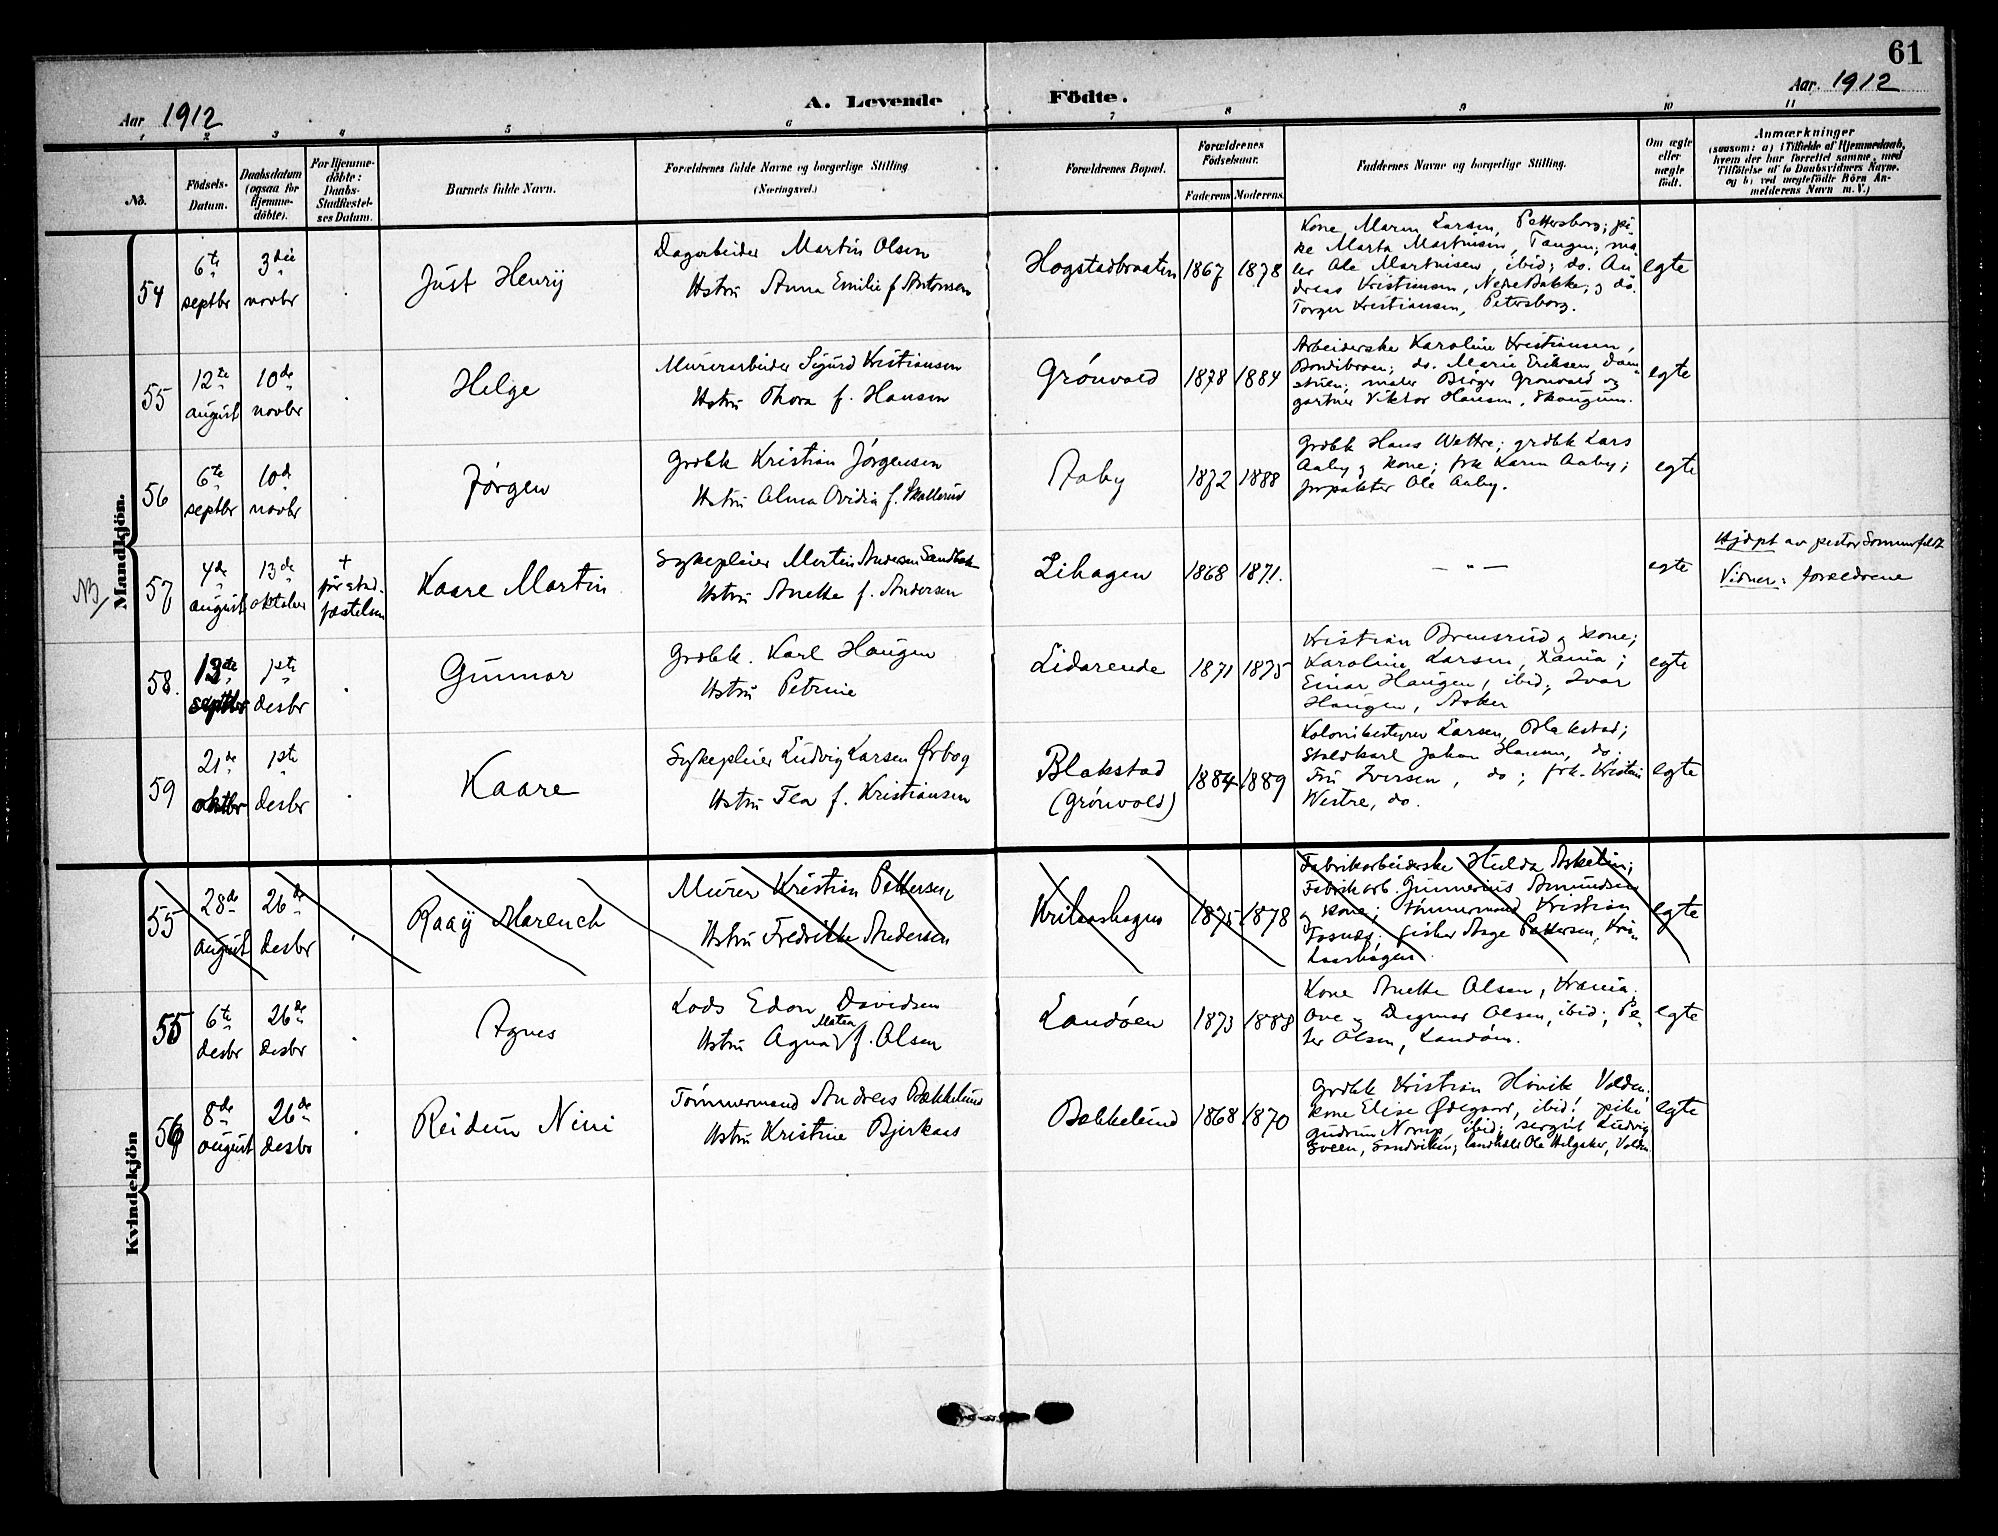 61
Aar 1912
A. Levende Födte.
Aar 1912
1 2 3 4 5 6 7 8 9 10 11
No.
Födsels-Datum.
Daabsdatum (ogsaa for Hjemme-döbte).
For Hjemme-döbte: Daabs-Stadfæstel-ses Datum.
Barnets fulde Navn.
Forældrenes fulde Navne og borgerlige Stilling
(Næringsvei.)
Forældrenes Bopæl.
Forældrenes Födselsaar.
Faderens Moderens
Faddernes Navne og borgerlige Stilling.
Om ægte eller uægte födt.
Anmærkninger
(saasom: a) i Tilfælde af Hjemmedaab,
hvem der har forrettet samme, med
Tilföielse af to Daabsvidners Navne.
og b) ved uægtefödte Börn An-
melderens Navn m. V.)
Mandkjön.
54
6te septbr
3die novbr
Just Henry
Dagarbeider Martin Olsen
Hstru Anna Emilie f. Antonsen
Hogstadbraaten
1867 1878
Kone Maren Larsen, Pettersborg; pi-
ke Marta Martinsen, Tangen; ma-
ler Ole Martinsen, ibid; do. An-
dreas Kristiansen, Nedre Bakke; og do.
Torger Kristiansen, Petersborg.
egte
55
12te august
10de novbr
Helge
Murerarbeider Sigurd Kristiansen
Hstru Thora f. Hansen
Grönvold
1878 1884
Arbeiderske Karoline Kristiansen,
Bondibroen; do. Marie Eriksen, Dam-
stuen; maler Birger Grønvold og
gartner Viktor Hansen, Skaugum.
egte
56
6te septbr
10de novbr
Jørgen
Grdbk Kristian Jørgensen
Hstru Alma Ovidia f. Skallerud
Aaby
1872 1888
Grdbk Hans Wettre; grdbk Lars
Aaby og kone; frk Karen Aaby;
forpakter Ole Aaby.
egte
NB/
57
4de august
13de oktober
+ før stad-
fæstelsen
Kaare Martin
Sykepleier Martin Andersen Sandbak
Hstru Anette f. Andersen
Lihagen
1868 1871.
— " —
egte
Hjdpt av pastor Sommerfeldt
Vidner: forældrene
58.
12te septbr
1ste desbr
Gunnar
Grdbk. Karl Haugen
Hstru Petrine
Lidarende
1871 1875
Kristian Brensrud og kone;
Karoline Larsen, Krania;
Einar Haugen, ibid; Ivar
Haugen, Asker
egte
59
21de oktbr
1ste desbr
Kaare
Sykepleier Ludvig Larsen Ørbog
Hstru Tea f. Kristiansen
Blakstad
(Grönvold)
1884 1889
Kolonibestyrer Larsen, Blakstad;
Staldkarl Johan Hansen, do.
Fru Iversen, do; frk. Kristine
Westre, do.
egte
Kvindekjön
55
28de august
26de desbr
Raay Marench
Murer Kristian Pettersen
Hstru Fredrikke Andersen
1875 1878
Fabrikarbeiderske Hulda Askelin;
Fabrikarb. Gunnerius Amundsen
og kone; tømmermand Kristian
fisker Aage Pettersen,
egte
55
6te desbr
26de desbr
Agnes
Lods Edon Davidsen
Hstru Agna Matea f. Olsen
Landøen
1873 1888
Kone Anette Olsen, Krania.
Ove og Dagmar Olsen, ibid; Pe-
ter Olsen, Landøen.
egte
56
8de august
26de desbr
Reidun Nini
Tømmermand Andreas Bækkelund
Hstru Kristine Bjerkaas
Bækkelund
1868 1870
Grdbk Kristian Høvik Valden;
kone Elise Ødegaard, ibid; pike
Gudrun Norup, ibid; sergt Ludvig
Sveen, Sandviken; landhdl. Ole Helgaker, Valden.
egte